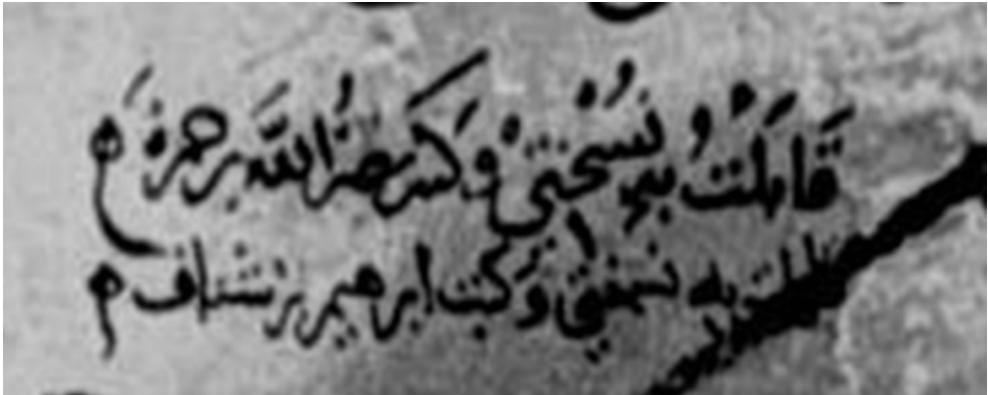 قَابَلْتُ بِهِ نُسْخَتِيْ وَكَتَبَ نصرُ اللَّه بن حمزةَ
قابلت به نسختي وَكتب ابرهيم بن